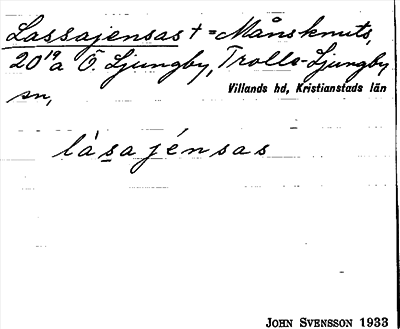 Lassajensas † = Månsknuts,
20¹⁹a Ö. Ljungby, Trolle-Ljungby
sn,
Villands hd, Kristianstads län
làsajénsas
JOHN SVENSSON 1933